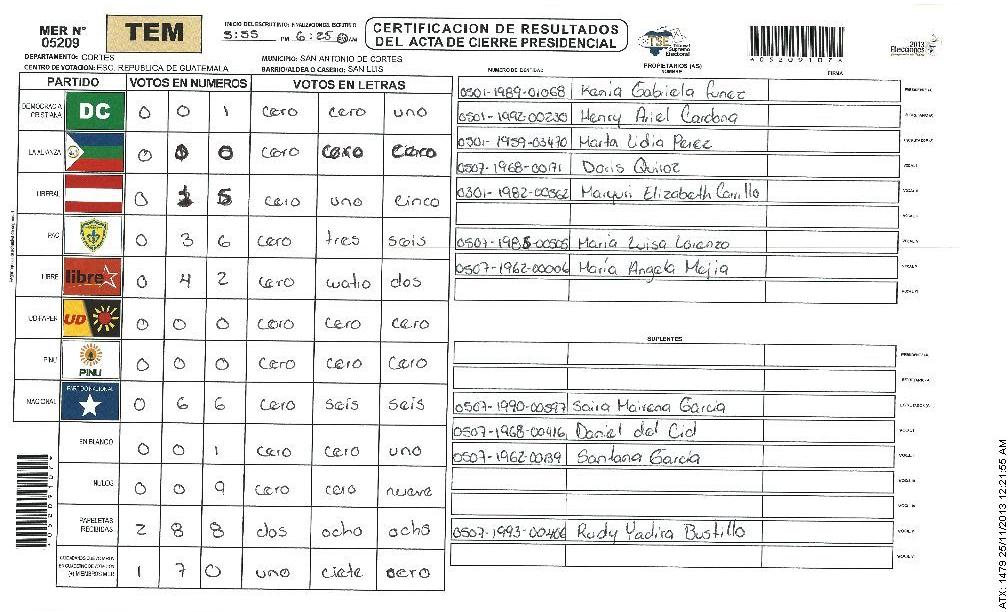 MER Nº 05209
TEM
INICIO DEL ESCRUTINIO: FINALIZACION DEL ESCRUTINIO
5:55 PM 6:25 AM
CERTIFICACION DE RESULTADOS
DEL ACTA DE CIERRE PRESIDENCIAL
TSE Tribunal Supremo Electoral
4052091074
2013 Elecciones
DEPARTAMENTO: CORTES
MUNICIPIO: SAN ANTONIO DE CORTES
CENTRO DE VOTACION: ESC. REPUBLICA DE GUATEMALA
BARRIO/ALDEA O CASERIO: SAN LUIS
PARTIDO VOTOS EN NUMEROS VOTOS EN LETRAS
DEMOCRACIA CRISTIANA DC 0 0 1 cero cero uno
LA ALIANZA 0 0 0 cero cero cero
LIBERAL 0 1 5 cero uno cinco
PAC 0 3 6 cero tres seis
LIBRE libre 0 4 2 cero cuatro dos
UD-FAPER UD 0 0 0 cero cero cero
PINU PINU 0 0 0 cero cero cero
NACIONAL PARTIDO NACIONAL 0 6 6 cero seis seis
EN BLANCO 0 0 1 cero cero uno
NULOS 0 0 9 cero cero nueve
PAPELETAS RECIBIDAS 2 8 8 dos ocho ocho
1 7 0 uno ciete cero
NUMERO DE IDENTIDAD PROPIETARIOS (AS) NOMBRE FIRMA
0501-1989-01068 Kenia Gabriela Funez
0501-1992-00230 Henry Ariel Cardona
0501-1959-03470 Marta Lidia Perez
0507-1968-00171 Doris Quiroz
0301-1982-00362 Maryuri Elizabeth Carrillo
0507-1985-00505 Maria Luisa Lorenzo
0507-1962-00006 María Angela Mejia
SUPLENTES
0507-1990-00597 Saira Mairena Garcia
0507-1968-00416 Daniel del Cid
0507-1962-00139 Santana García
0507-1993-00406 Rudy Yadira Bustillo
4052091074
ATX: 1479 25/11/2013 12:21:55 AM